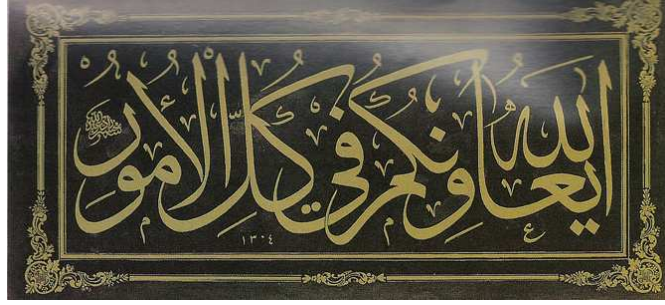 الله يعاونكم في كل الأمور
١٣٠٤